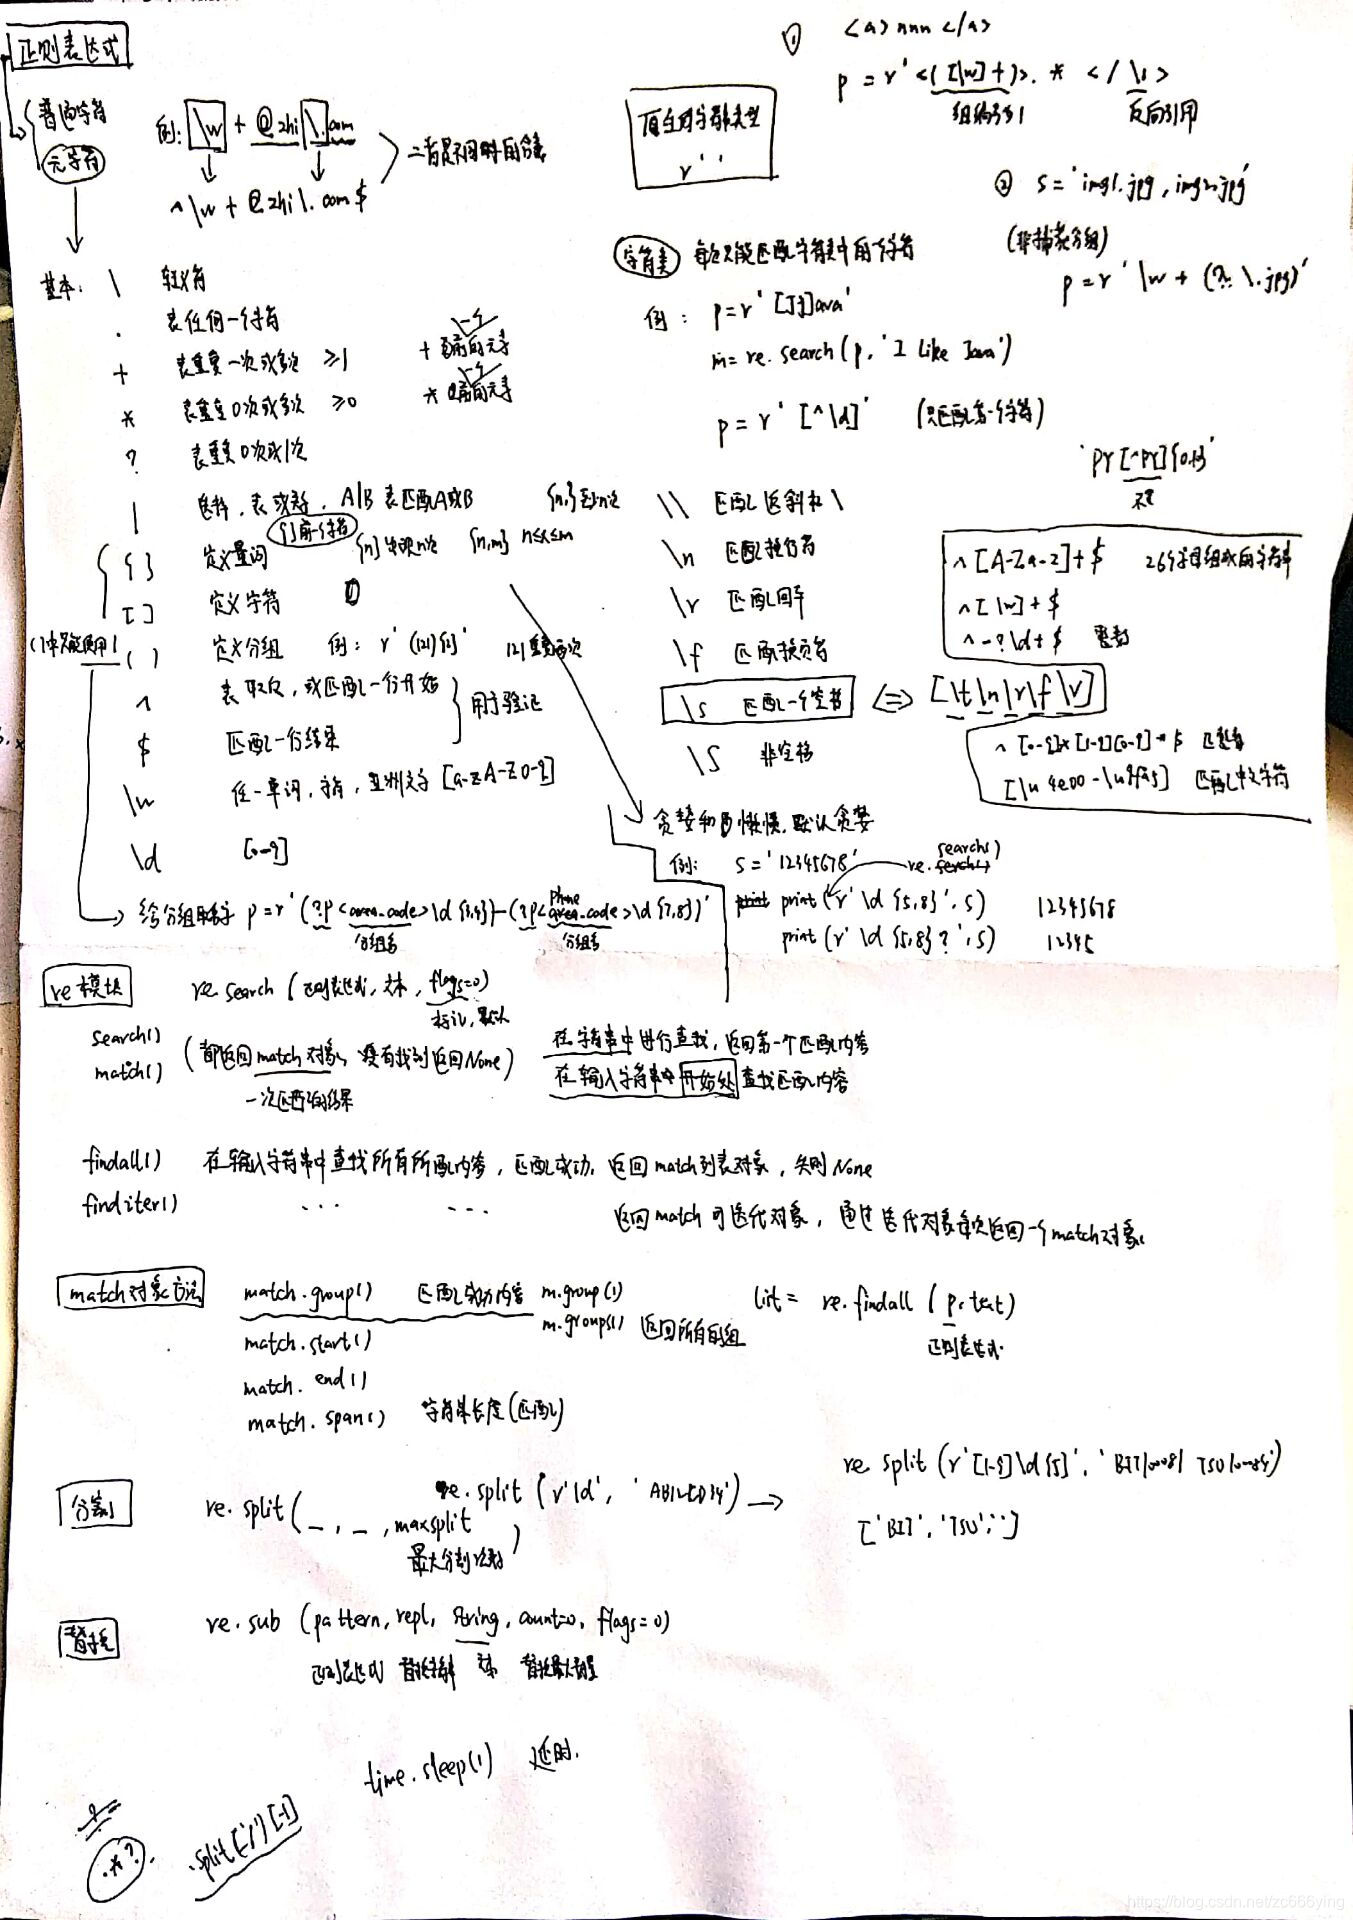 正则表达式
普通字符
元字符
例: \w + @zhi\.com
^\w + @zhi\.com$
二者是不同的
① <a>nnn</a>
p = r'<([\w]+)>.*</\1>
组编号1 反向引用
r' '
② s='img1.jpg, img2.jpg'
(非捕获分组)
p = r'\w+(?:\.jpg)'
字符类 每次只能匹配字符类中的一个字符
例: p=r'[Jj]ava'
m= re.search(p,'I Like Java')
p = r'[^\d]' (只匹配第一个字符)
基本: \ 转义符
. 表任何一个字符
+ 表重复一次或多次 ≥1 + 前面的一个元素
* 表重复0次或多次 ≥0 * 前面的一个元素
? 表重复0次或1次
| 选择, 表或关系, A|B 表匹配A或B {n,}至少n次
{ } 定义量词 {}前一字符 {n}出现n次 {n,m} n≤x≤m
[ ] 定义字符
( ) 定义分组 例: r'(121){2}' 121重复两次
()中只能使用|
^ 表取反, 或匹配一行开始
$ 匹配一行结束
用于验证
\w 任一单词, 字符, 亚洲文字 [a-zA-Z0-9]
\d [0-9]
\\ 匹配反斜杠\
\n 匹配换行符
\r 匹配回车
\f 匹配换页符
\s 匹配一个空格 <=> [\t\n\r\f\v]
\S 非空格
^[A-Za-z]+$ 26个字母组成的字符串
^[\w]+$
^-?\d+$ 整数
[\u4e00-\u9fa5] 匹配中文字符
贪婪和懒惰, 默认贪婪
例: s='12345678' re.search()
print(r'\d{5,8}', s) 12345678
print(r'\d{5,8}?', s) 12345
给分组取名字 p=r'(?P<area_code>\d{3,4})-(?P<phone_code>\d{7,8})'
分组名 分组名
re模块 re.search(正则表达式, 文本, flags=0)
标记, 默认
search()
match()
(都返回match对象, 没有找到返回None)
一次匹配的结果
在字符串中进行查找, 返回第一个匹配内容
在输入字符串中开始处查找匹配内容
findall() 在输入字符串中查找所有所匹配内容, 匹配成功, 返回match列表对象, 失败None
finditer() ... ... 返回match可迭代对象, 通过迭代对象每次返回一个match对象
match对象方法 match.group() 匹配成功内容 m.group(1)
m.groups() 返回所有的组
list = re.findall(p,text)
正则表达式
match.start()
match.end()
match.span() 字符串长度(匹配)
分割 re.split(_,_,maxsplit)
最大分割次数
re.split(r'\d', 'AB12CD34') →
['BIT','TSU','']
替换 re.sub(pattern, repl, string, count=0, flags=0)
正则表达式 替换字符串 文本 替换最大数量
time.sleep(1) 延时.
.*?
.split['/')[-1]
https://blog.csdn.net/zc666ying